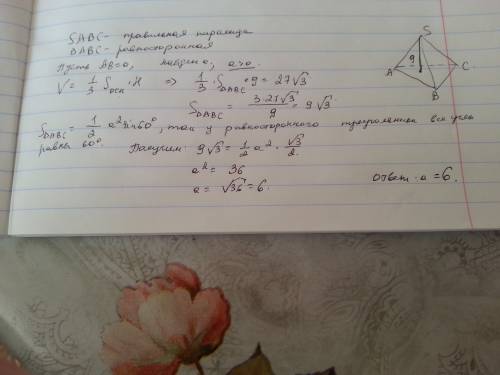 SABC - правильная пирамида
ΔABC - равносторонняя
Пусть AB=a, найдем a, a>0
V = 1/3 Sосн · H ⇒ 1/3 · SΔABC · 9 = 27√3
SΔABC = 3·27√3/9 = 9√3
SΔABC = 1/2 a² sin60°, так у равностороннего треугольника все углы
равны 60°. Получим: 9√3 = 1/2 a² · √3/2
a² = 36
a = √36 = 6.
Ответ: a = 6.
S
9
A
C
B